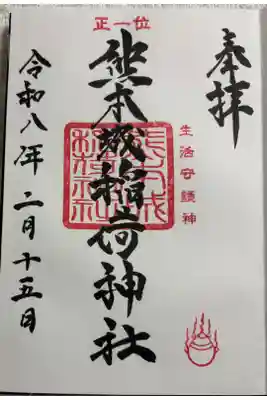 奉拝
生活守護神
正一位
熊本城稲荷神社
令和八年二月十五日